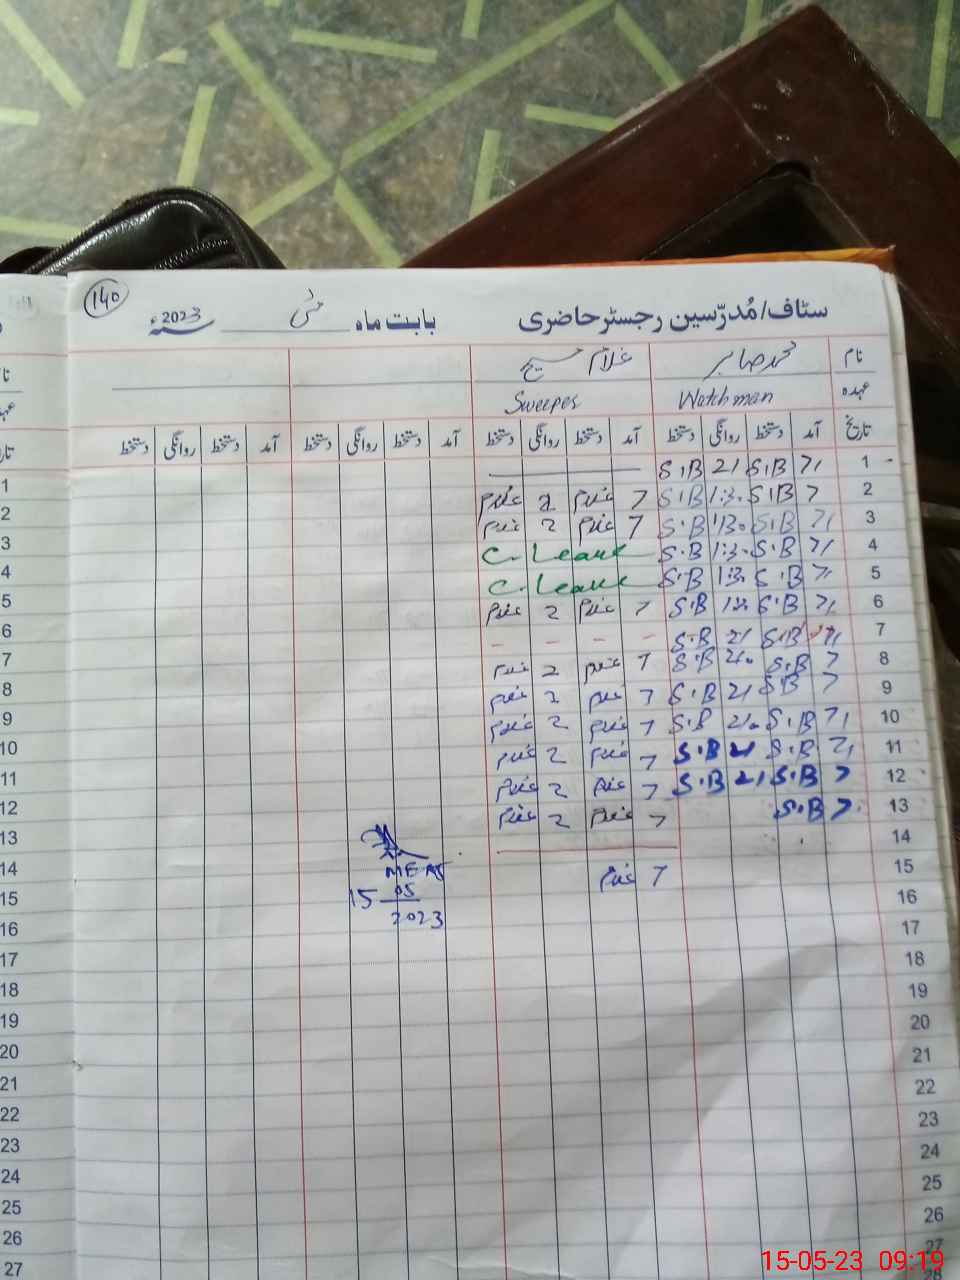 140
سٹاف/مُدرّسین رجسٹر حاضری بابت ماہ مئی سنہ 2023ء
نام محمد صابر غلام مسیح
عہدہ Watchman Sweeper
تاریخ آمد دستخط روانگی دستخط آمد دستخط روانگی دستخط آمد دستخط روانگی دستخط آمد دستخط روانگی دستخط
1 7/ S.B 2/ S.B
2 7 S.B 1:30 S.B 7 غلام 2 غلام
3 7/ S.B 1:30 S.B 7 غلام 2 غلام
4 7/ S.B 1:30 S.B C.Leave
5 7/ S.B 1:30 S.B C.Leave
6 7/ S.B 1:30 S.B 7 غلام 2 غلام
7 7/ S.B 2/ S.B - - - -
8 7 S.B 2/. S.B 7 غلام 2 غلام
9 7 S.B 2/ S.B 7 غلام 2 غلام
10 7/ S.B 2/. S.B 7 غلام 2 غلام
11 7/ S.B 2/ S.B 7 غلام 2 غلام
12 7 S.B 2/ S.B 7 غلام 2 غلام
13 7 S.B 7 غلام 2 غلام
14
15 7 غلام
16
17
18
19
20
21
22
23
24
25
26
27
28
15
05
2023
1
2
3
4
5
6
7
8
9
10
11
12
13
14
15
16
17
18
19
20
21
22
23
24
25
26
27
15-05-23 09:19